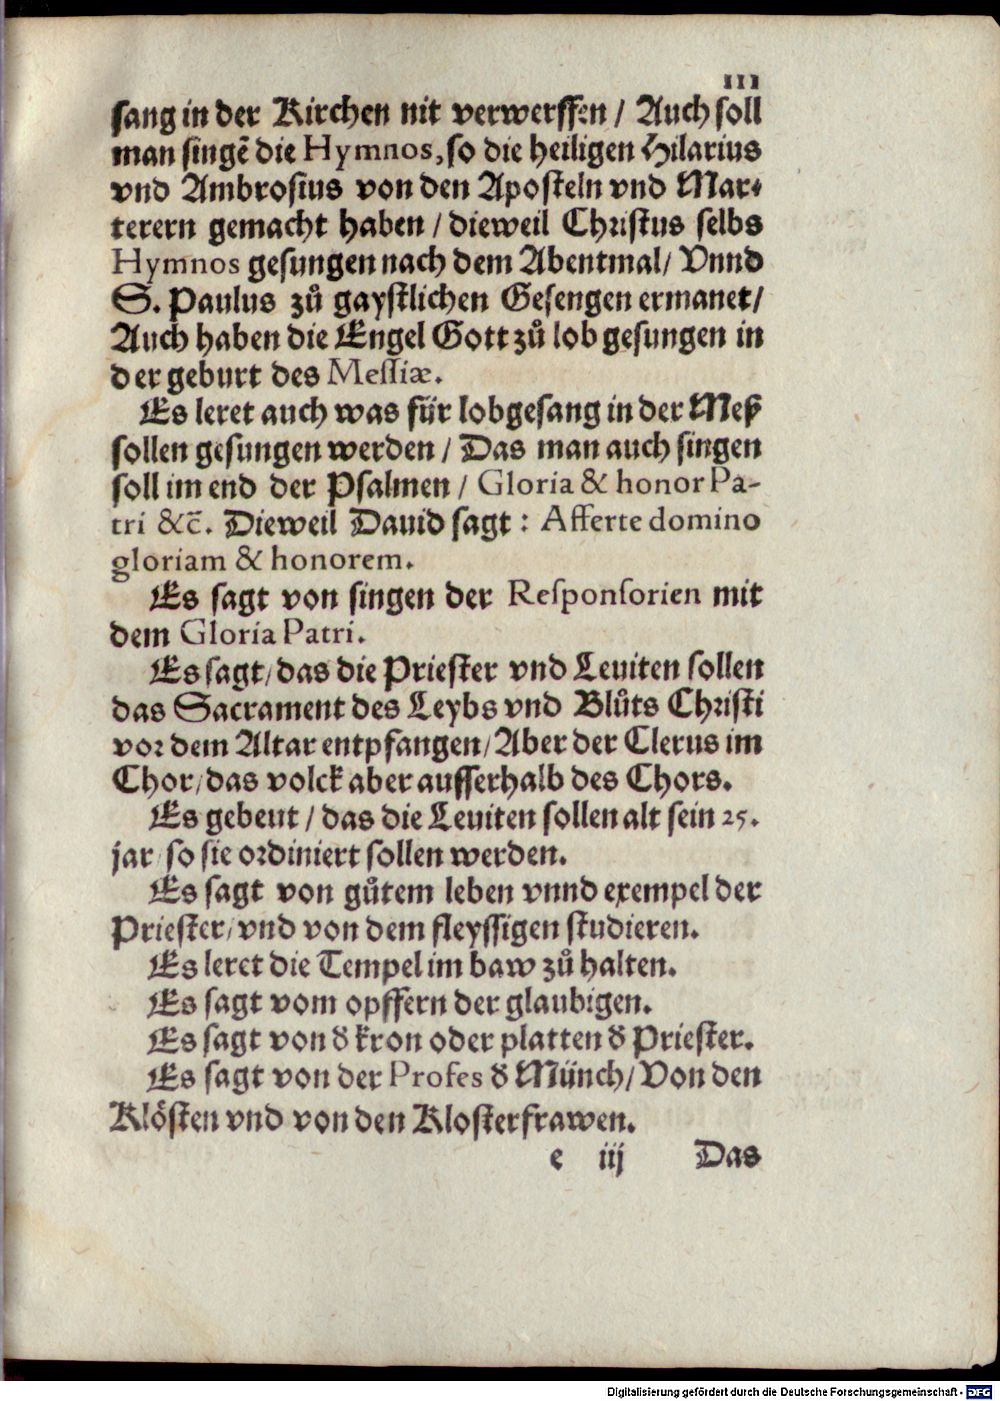 111
sang in der Kirchen nit verwerffen / Auch soll
man singẽ die Hymnos, so die heiligen Hilarius
vnd Ambrosius von den Aposteln vnd Mar-
terern gemacht haben / dieweil Christus selbs
Hymnos gesungen nach dem Abentmal / Vnnd
S. Paulus zů gaystlichen Gesengen ermanet /
Auch haben die Engel Gott zů lob gesungen in
der geburt des Messiæ.
Es leret auch was für lobgesang in der Meß
sollen gesungen werden / Das man auch singen
soll im end der Psalmen / Gloria & honor Pa-
tri &c̃. Dieweil Dauid sagt : Afferte domino
gloriam & honorem.
Es sagt von singen der Responsorien mit
dem Gloria Patri.
Es sagt / das die Priester vnd Leuiten sollen
das Sacrament des Leybs vnd Blůts Christi
vor dem Altar entpfangen / Aber der Clerus im
Chor / das volck aber ausserhalb des Chors.
Es gebeut / das die Leuiten sollen alt sein 25.
jar / so sie ordiniert sollen werden.
Es sagt von gůtem leben vnnd exempel der
Priester / vnd von dem fleyssigen studieren.
Es leret die Tempel im baw zů halten.
Es sagt vom opffern der glaubigen.
Es sagt von ď kron oder platten ď Priester.
Es sagt von der Profes ď Münch / Von den
Klösten vnd von den Klosterfrawen.
e iij Das
Digitalisierung gefördert durch die Deutsche Forschungsgemeinschaft - DFG